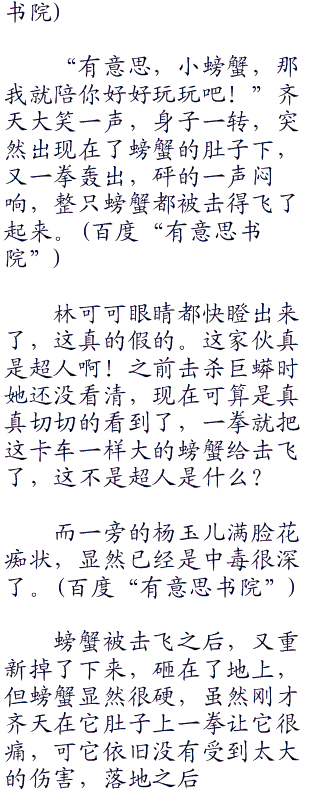 书院）
“有意思，小螃蟹，那
我就陪你好好玩玩吧！”齐
天大笑一声，身子一转，突
然出现在了螃蟹的肚子下，
又一拳轰出，砰的一声闷
响，整只螃蟹都被击得飞了
起来。（百度“有意思书
院”）
林可可眼睛都快瞪出来
了，这真的假的。这家伙真
是超人啊！之前击杀巨蟒时
她还没看清，现在可算是真
真切切的看到了，一拳就把
这卡车一样大的螃蟹给击飞
了，这不是超人是什么？
而一旁的杨玉儿满脸花
痴状，显然已经是中毒很深
了。（百度“有意思书院”）
螃蟹被击飞之后，又重
新掉了下来，砸在了地上，
但螃蟹显然很硬，虽然刚才
齐天在它肚子上一拳让它很
痛，可它依旧没有受到太大
的伤害，落地之后